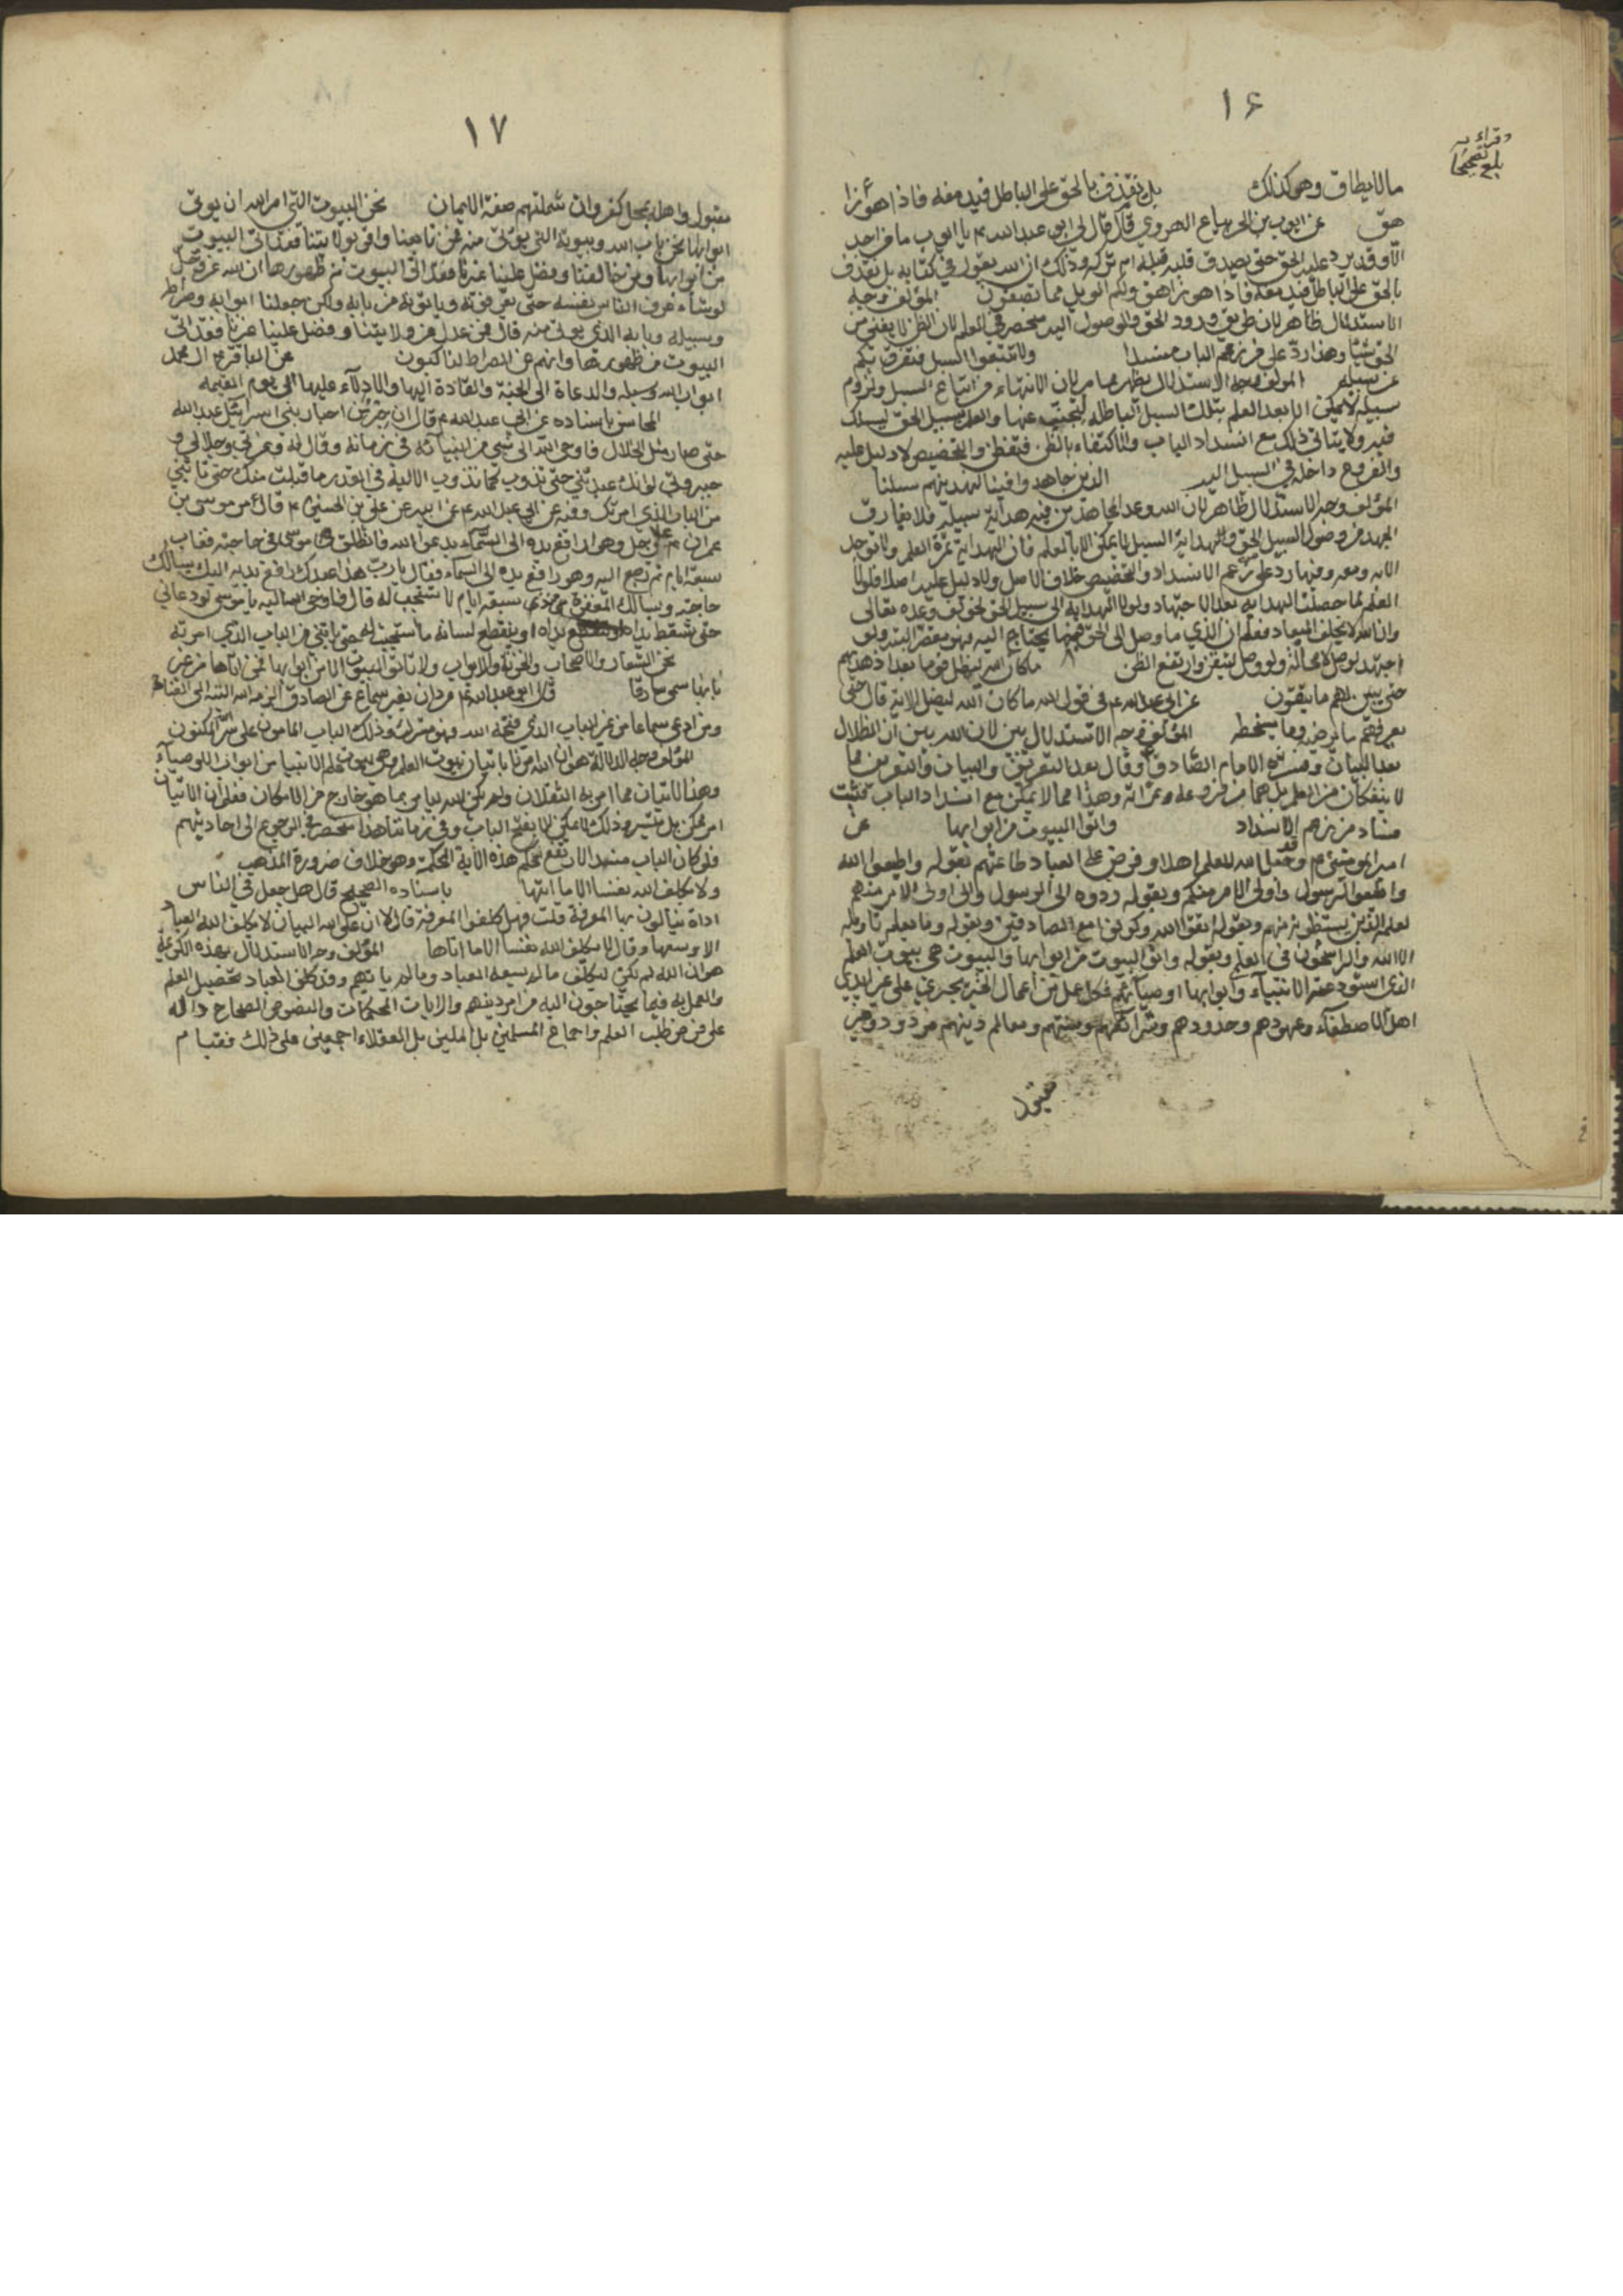 ١٦
بلغ تصحيحا
ما لا يطاق وهو كذلك بل نقذف بالحق على الباطل فيدمغه فاذا هو زا
هق عن ايوب بن الحر بياع الهروي قال قال لي ابو عبد الله ع يا ايوب ما من احد
الا وقد يرد عليه الحق حتى يصدق قلبه قبله ام تركه وذلك ان الله يقول في كتابه بل نقذف
بالحق على الباطل فيدمغه فاذا هو زاهق ولكم الويل مما تصفون المؤلف وجه
الاستدلال ظاهر لان طريق ورود الحق والوصول اليه منحصر في العلم لان الظن لا يغني من
الحق شيئا وهذا رد على من زعم الباب منسدا ولا تتبعوا السبل فتفرق بكم
عن سبيله المؤلف وجه الاستدلال يظهر مما مر لان الانتهاء من اتباع السبل ولزوم
سبيله لا يمكن الا بعد العلم بتلك السبل الباطلة ليجتنب عنها والعلم بسبيل الحق ليسلك
فيه ولا يتاتى ذلك مع انسداد الباب والاكتفاء بالظن فتفطن والتخصيص لا دليل عليه
والفروع داخلة في السبيل اليه الذين جاهدوا فينا لنهدينهم سبلنا
المؤلف وجه الاستدلال ظاهر لان الله وعد المجاهدين فيه هداية سبيله فلا يفارق
الجهد من وصول السبيل الحق والهداية السبيل لا يمكن الا بالعلم فان الهداية ثمرة العلم
الانسداد والتخصيص خلاف الاصل ولا دليل عليه اصلا فلولا
العلم لما حصلت الهداية بعد الاجتهاد ولولا الهداية الى سبيل الحق لخولف وعده تعالى
وان الله لا يخلف الميعاد فعلم ان الذي ما وصل الى الحق فيما يحتاج اليه فهو مقصر البتة ولو
اجتهد لوصل لا محالة ولو وصل لتيقن وارتفع الظن ما كان الله ليضل قوما بعد اذ هديهم
حتى يبين لهم ما يتقون عن ابي عبد الله ع في قول الله ما كان الله ليضل الاية قال حتى
يعرفهم ما يرضيه وما يسخطه المؤلف وجه الاستدلال بين لان الله بين ان الظلال
بعد البيان وفسره الامام الصادق وقال بعد التعريف والبيان والتعريف مما
لا ينفكان من العلم بل هما من فروعه وثمراته وهذا مما لا يمكن مع انسداد الباب فثبت
فساد من زعم الانسداد واتوا البيوت من ابوابها عن
امير المؤمنين ع وقد جعل الله للعلم اهلا وفرض على العباد طاعتهم بقوله واطيعوا الله
واطيعوا الرسول واولي الامر منكم وبقوله ردوه الى الرسول والى اولي الامر منهم
لعلمه الذين يستنبطونه منهم وبقوله اتقوا الله وكونوا مع الصادقين وبقوله وما يعلم تاويله
الا الله والراسخون في العلم وبقوله واتوا البيوت من ابوابها والبيوت هي بيوت العلم
الذي استودعته الانبياء وابوابها اوصيائهم فكل عمل من اعمال الخير يجري على غير ايدي
اهل الاصطفاء وعهودهم وحدودهم وشرائعهم وسننهم ومعالم دينهم مردود وغير
مقبول
١٧
مقبول واهله بمحل كفر وان شملتهم صفة الايمان نحن البيوت التي امر الله ان يوتى
ابوابها نحن باب الله وبيوته التي يوتى منه فمن تابعنا واقر بولايتنا فقد اتى البيوت
من ابوابها ومن خالفنا وفضل علينا غيرنا فقد اتى البيوت من ظهورها ان الله عز وجل
لو شاء عرف الناس نفسه حتى يعرفونه وياتونه من بابه ولكن جعلنا ابوابه وصراطه
وسبيله وبابه الذي يوتى منه قال فمن عدل من ولايتنا وفضل علينا غيرنا فقد اتى
البيوت من ظهورها وانهم عن الصراط لناكبون عن الباقر ع ال محمد
ابواب الله وسبيله والدعاة الى الجنة والقادة اليها والادلاء عليها الى يوم القيمة
المحاسن باسناده عن ابي عبد الله ع قال ان حبرا من احبار بني اسرائيل عبد الله
حتى صار مثل الخلال فاوحى الله الى نبي من انبيائه في زمانه وقال له وعزتي وجلالي و
جبروتي لو انك عبدتني حتى تذوب كما تذوب الالية في القدر ما قبلت منك حتى تاتيني
من الباب الذي امرتك وفيه عن ابي عبد الله ع عن ابيه عن علي بن الحسين ع قال مر موسى بن
عمران ع على رجل وهو رافع يده الى السماء يدعو الله فانطلق موسى في حاجته فغاب
سبعة ايام ثم رجع اليه وهو رافع يده الى السماء فقال يا رب هذا عبدك رافع يديه اليك يسالك
حاجته ويسالك المغفرة منذ سبعة ايام لا تستجيب له قال فاوحى الله اليه يا موسى لو دعاني
حتى تسقط يداه او ينقطع لسانه ما استجبت له حتى ياتيني من الباب الذي امرته
نحن الشعار والاصحاب والخزنة والابواب ولا تاتوا البيوت الا من ابوابها فمن اتاها من غير
بابها سمي سارقا قال ابو عبد الله ع من دان بغير سماع عن الصادق الزمه الله التيه الى الفناء
ومن ادعى سماعا من غير الباب الذي فتحه الله فهو مشرك وذلك الباب المامون على سر الله المكنون
المؤلف وجه الدلالة هو ان الله امرنا باتيان بيوت العلم وهي بيوت علم الانبياء من ابواب الاوصياء
وهذا الاتيان مما امر به الثقلان ولم يكن الله ليامر بما هو خارج من الامكان فعلم ان الاتيان
امر ممكن بل متيسر وذلك لا يمكن الا بفتح الباب وفي زماننا هذا منحصر في الرجوع الى احاديثهم
فلو كان الباب منسدا لارتفع حكم هذه الاية المحكمة وهو خلاف ضرورة المذهب
ولا يكلف الله نفسا الا ما اتيها باسناده الصحيح قال هل جعل في الناس
اداة ينالون بها المعرفة قلت فهل كلفوا المعرفة قال لا ان على الله البيان لا يكلف الله العباد
الا وسعها وقال لا يكلف الله نفسا الا ما اتاها المؤلف وجه الاستدلال بهذه الكريمة
هو ان الله لم يكن ليكلف ما لم يسعه العباد وما لم ياتهم وقد كلف العباد تحصيل العلم
والعمل به فيما يحتاجون اليه من امر دينهم والايات المحكمات والنصوص الصحاح دالة
على فرض طلب العلم واجماع المسلمين بل المليين بل العقلاء اجمعين على ذلك فقيام